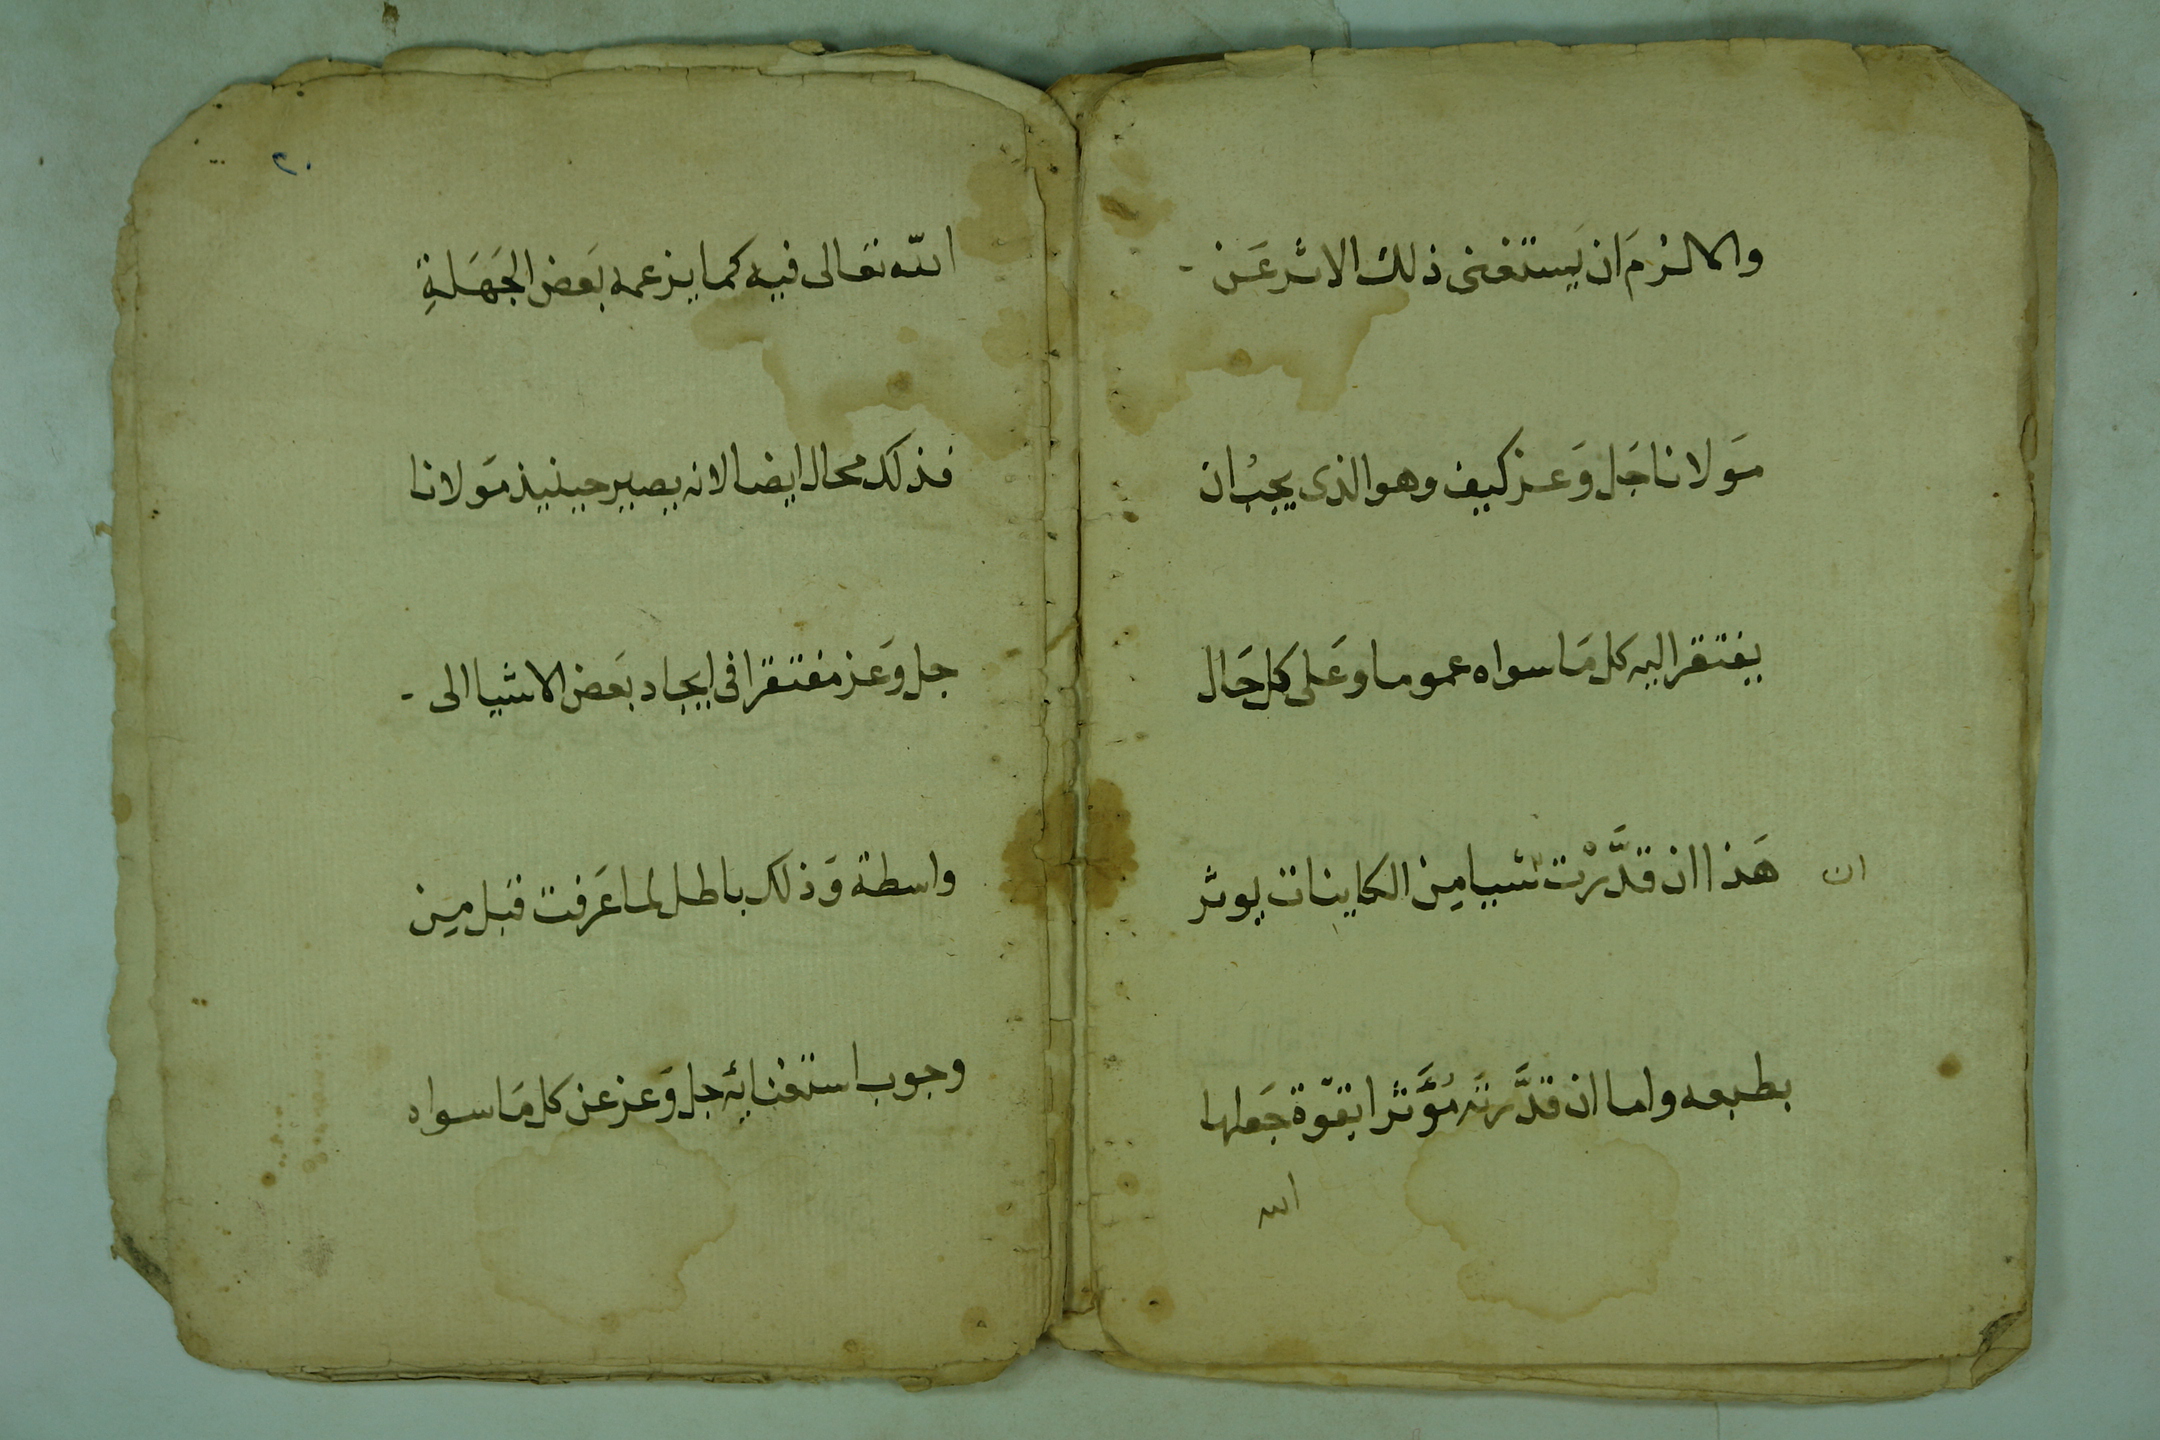 والا لزم ان يَستغنى ذلك الاثر عَن
مَولانا جَل وَعز كيف وهو الذى يجبُ ان
يفتقر اليه كل مَا سواه عموما وعَلى كل حَال
ان
هَذا ان قدَّرْت شيا مِن الكاينات يوثر
بطبعه واما ان قدَّرتَه مُؤَثرا بقوّة جَعلها
الله
٢٠
اللّه تعَالى فيه كما يزعمه بَعض الجَهَلةِ
فذلك محال ايضا لانه يصير حينيذ مَولانا
جل وَعز مفتقرا فى ايجاد بَعض الاشيا الى
واسطة وَذلك باطل لما عَرفت قبل مِن
وجوب استغنائه جل وَعز عن كل مَا سواه